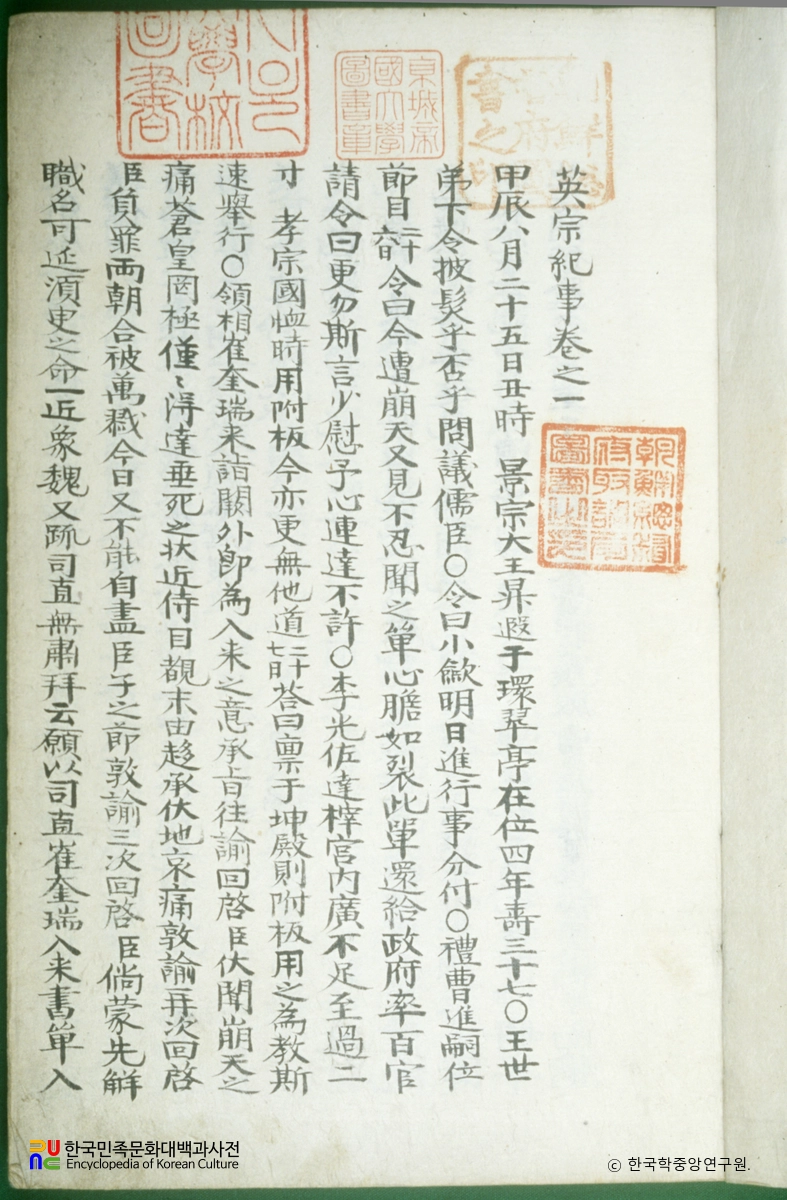 英宗紀事卷之一
甲辰八月二十五日丑時 景宗大王昇遐于環翠亭在位四年壽三十七○王世
弟下令披髮乎否乎問議儒臣○令曰小歛明日進行事分付○禮曹進嗣位
節目二十六日令曰今遭崩天又見不忍聞之單心膽如裂此單還給政府率百官
請令曰更勿斯言少慰予心連達不許○李光佐達梓宮內廣不足至過二
寸 孝宗國恤時用附板今亦更無他道二十七日答曰稟于坤殿則附板用之為教斯
速舉行○領相崔奎瑞来詣闕外卽為入来之意承旨往諭回啓臣伏聞崩天之
痛蒼皇罔極僅〻淂達垂死之狀近侍目覩末由趍承伏地哀痛敦諭再次回啓
臣負罪兩朝合被萬戮今日又不能自盡臣子之節敦諭三次回啓臣倘蒙先解
職名可延湏臾之命一近象魏又疏司直無肅拜云願以司直崔奎瑞入来書單入
京城帝國大學圖書章
한국민족문화대백과사전
Encyclopedia of Korean Culture
© 한국학중앙연구원.